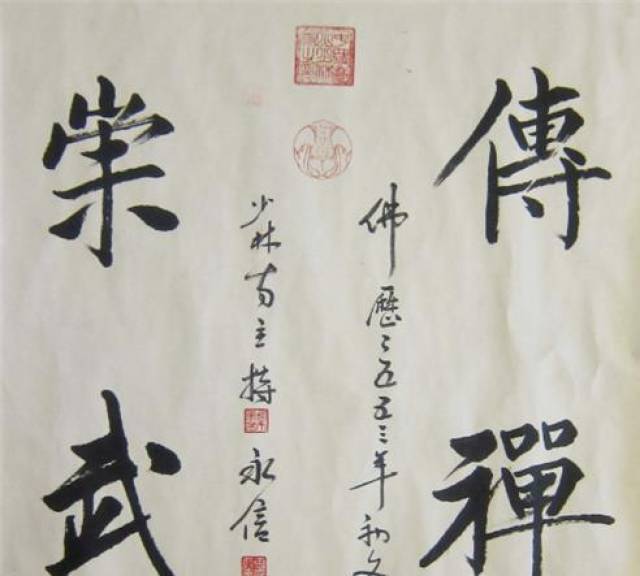 傳禪
佛歷二五五三年初
少林寺主持永信
崇武